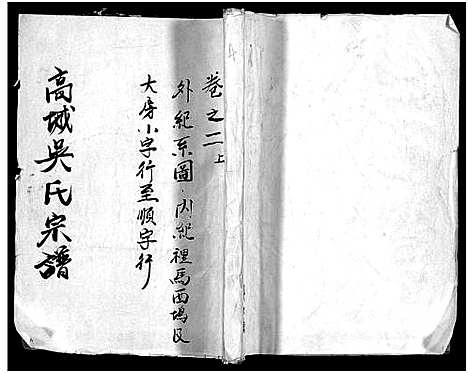 卷之二上
外紀系圖·內紀裡馬西塢及
大房小字行至順字行
高城吳氏宗譜